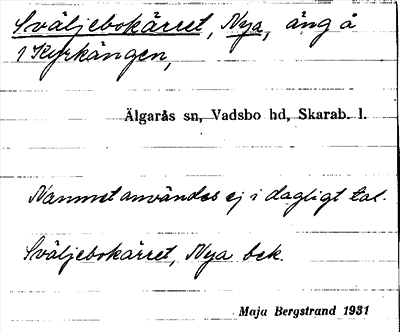 Sväljebokärret, Nya, äng å
Kyrkängen,
Älgarås sn, Vadsbo hd, Skarab. l.
Namnet användes ej i dagligt tal.
Sväljebokärret, Nya bek.
Maja Bergstrand 1931